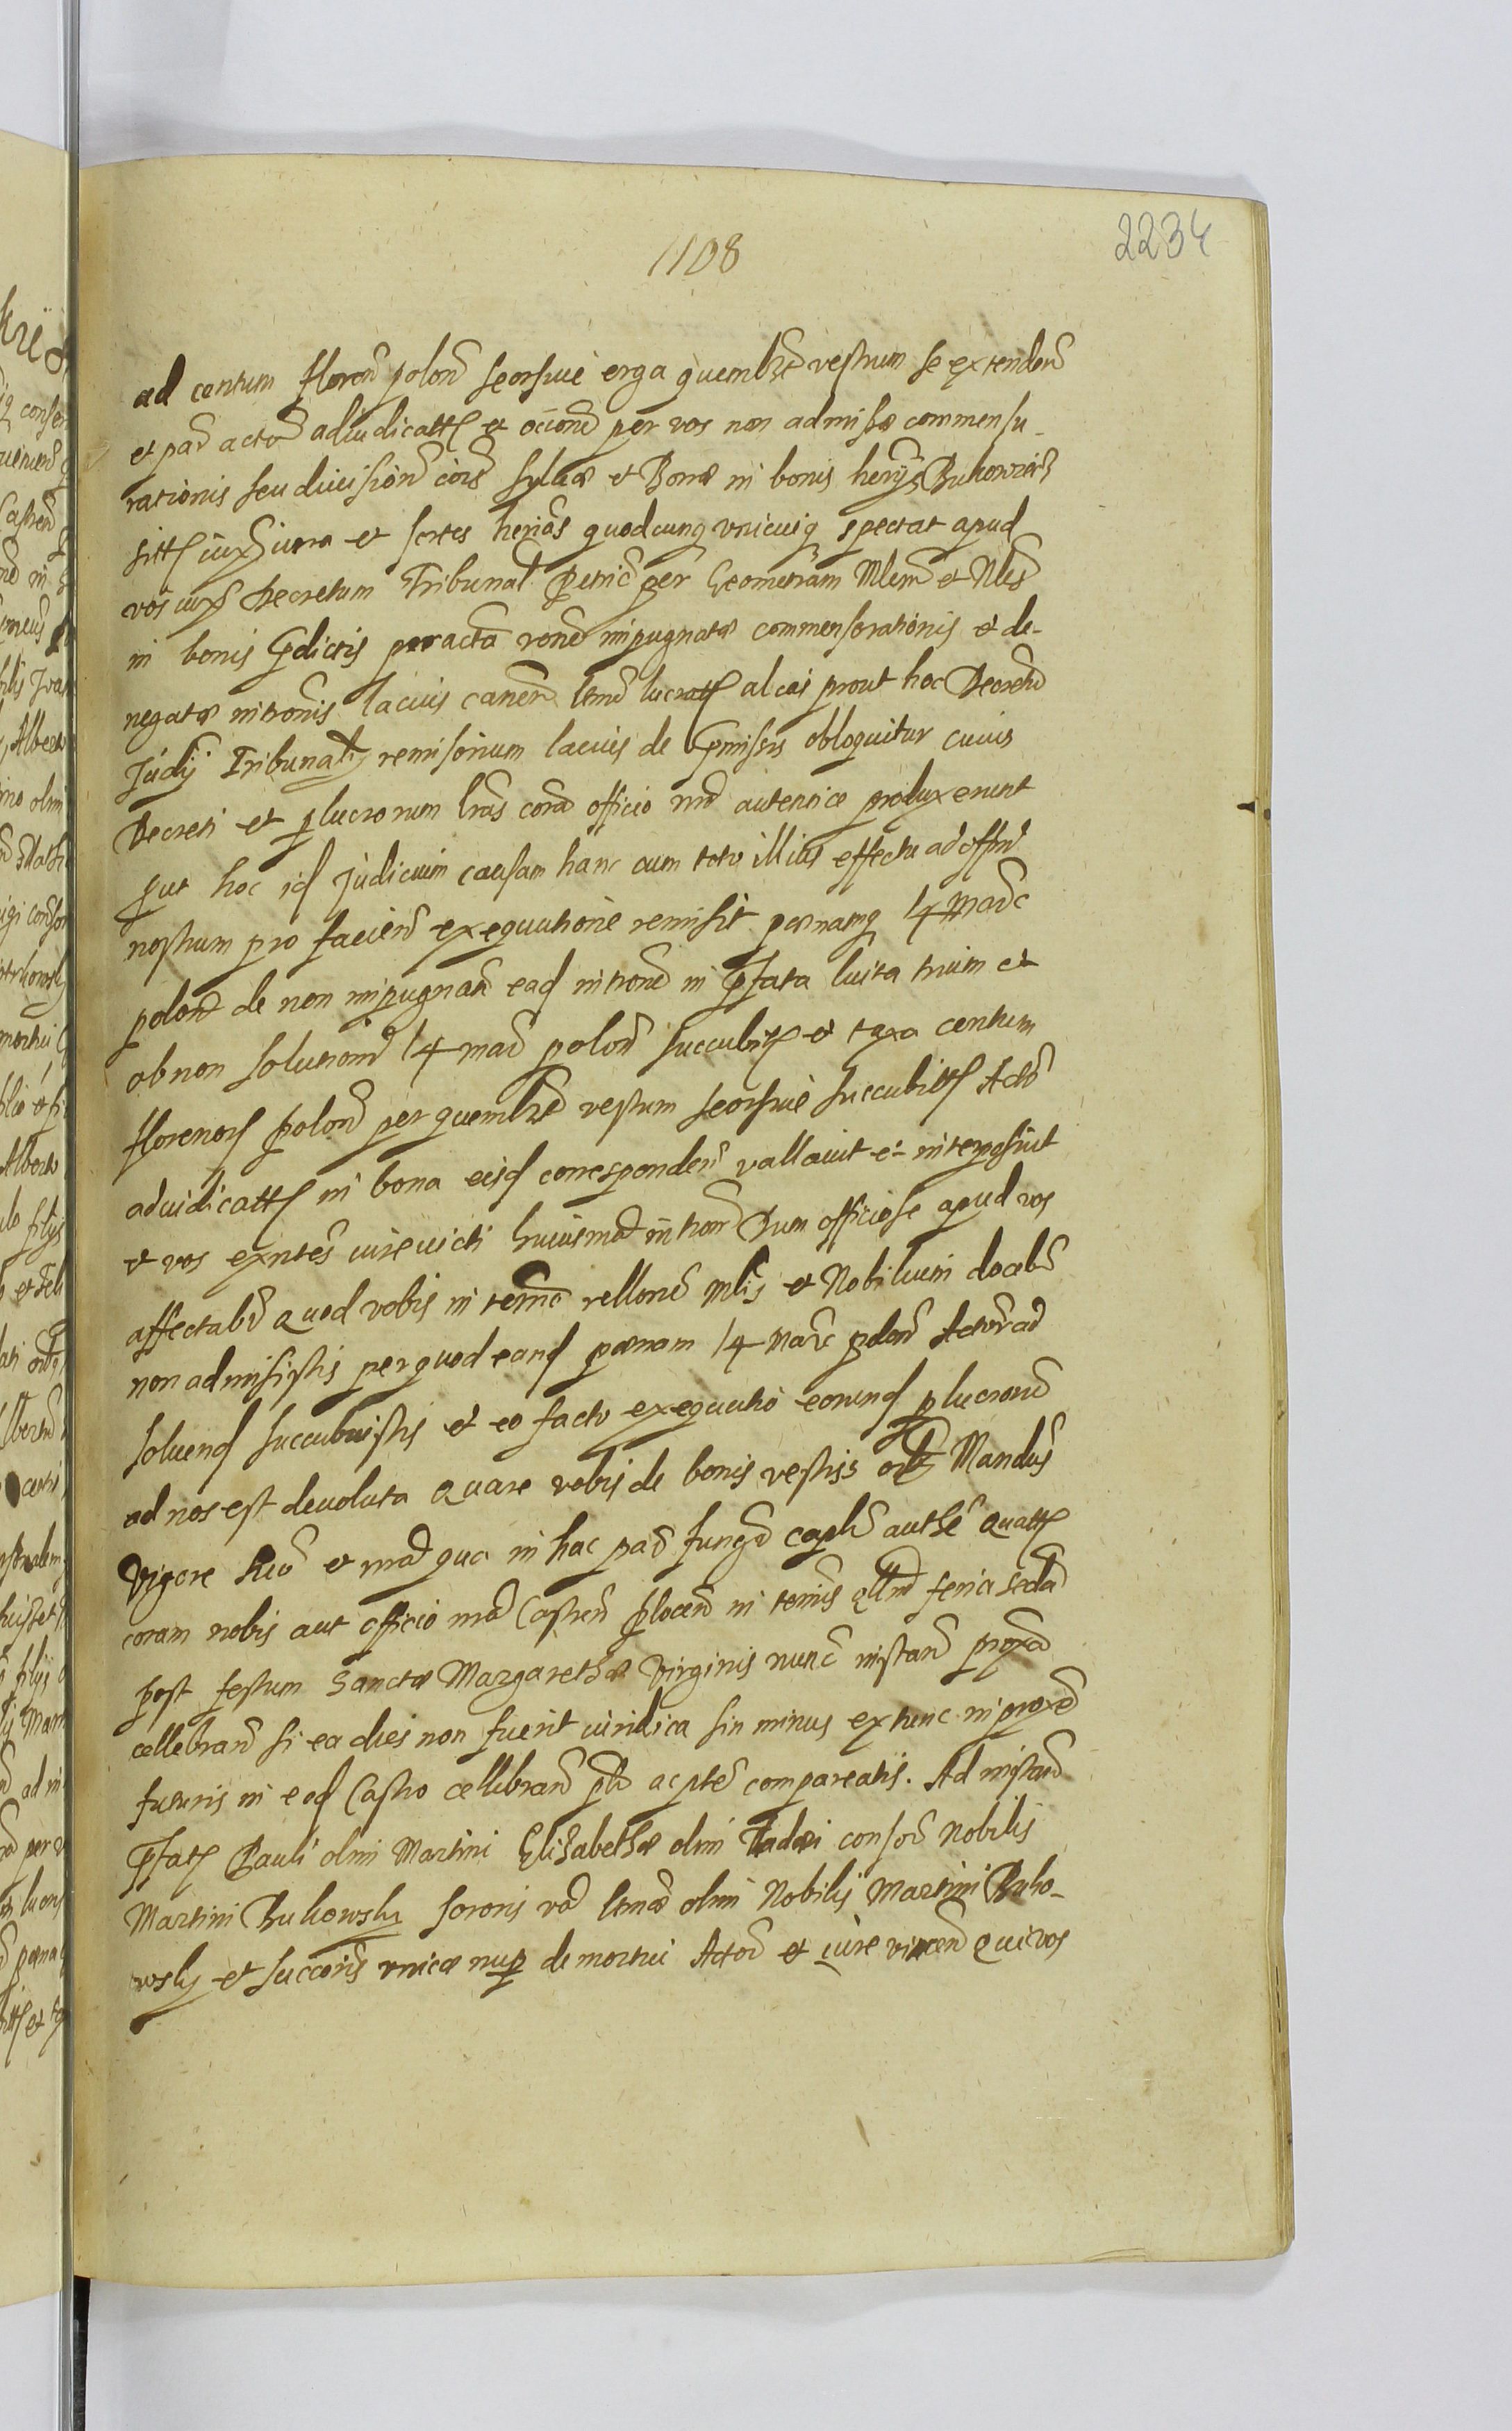 2234
1108
ad centum floren polon seorsive erga quemlibet vestrum se extenden
et par actor adiudicatt et occione per vos non admissæ commensu-
rationis seu divisionis Sylvæ et Boræ in bonis herijs Bukowiecz
sitt iux iura et sortes herias quodcunq unicuiq spectat apud
vos iux Decretum Tribunal Petric per Geometram Mlem et Nles
in bonis pdictis peracta rone impugnatæ commensorationis et de-
negatæ intronis lacius canen ltme lucratt al cas prout hoc Decretu
Judij Tribunalis remisorium lacius de pmissis obloquitur cuius
Decreti et plucrorum lras cora officio nro autentice produxerunt
put hoc id Judicium causam hanc cum toto illius effectu ad offm
nostrum pro facien exequutione remisit pænamq 14 Marc
polon de non impugnan ead introne in pfata luita truim et
ob non solutionem 14 mar polon succubit et taxa centum
florenor polon per quemlibet vestrum seorsive succubitt Actor
adiudicatt in bona eisd corresponden vallavit et interposuit
et vos exntes iurevicti huiusmod intron Dum officiose apud vos
affectabr Quod vobis in termo rellone Mlis et Nobilium docebr
non admisistis per quod eand pænam 14 Marc polon Actor ad
soluend succubuistis et eo facto exequutio eorund plucror
ad nos est devoluta Quare vobis de bonis vestris Mandus
Vigore Reo et mad qua in hac par fungr caplt authe Quatt
coram nobis aut officio nro Castren plocen in termis feria secda
post festum Sanctæ Margarethæ Virginis nunc instan proxa
cellebran si ea dies non fuerit iuridica sin minus extunc in proxe
futuris in eod Castro cellebran plr ac pte compareatis. Ad instan
pfat Pauli olim Martini Elisabethæ olim Tadæi consor Nobilis
Martini Bukowsky sororis vo ltmæ olim Nobilis Martini Buko-
wsky et succoris unicæ nup demortui Actor et iure vincen Qui vos